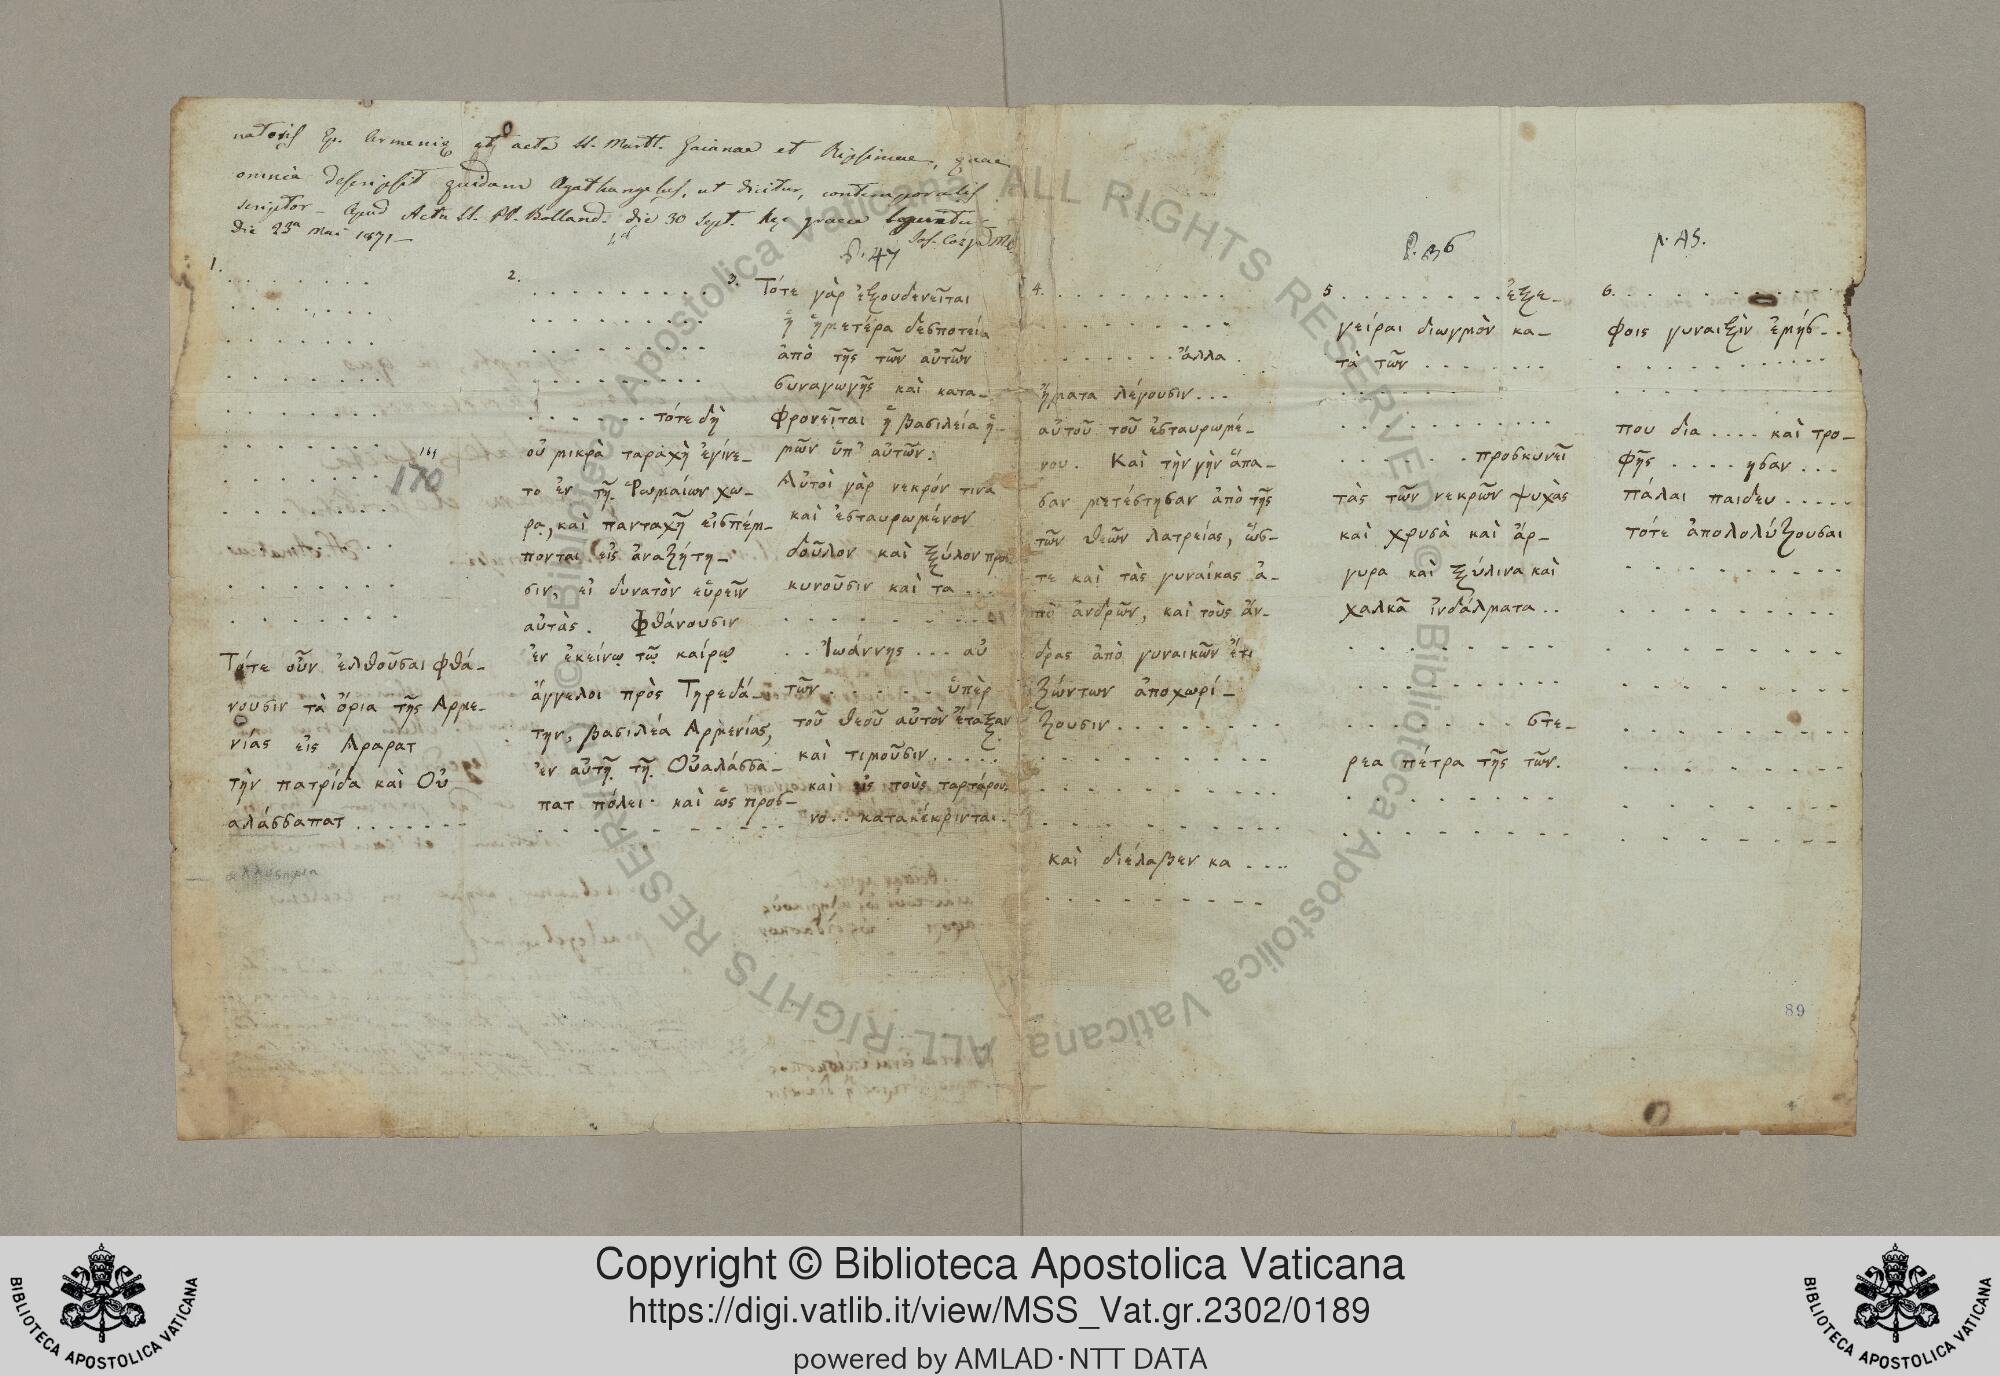 natoris Ep. Armenię et acta SS. Martt. Gaianae et Ripsimae, quae
omnia descripsit quidam Agathangelus, ut dicitur, contemporalis
scriptor — apud Acta SS. PP. Bolland. die 30 Sept. hęc graece leguntur
Die 23ª Maii 1871 —
p. 47
p. 36
p. 45.
1. . . . . . . .
169
170
Τότε οὖν ἐλθοῦσαι φθά-
νουσιν τὰ ὅρια τῆς Αρμε-
νίας εἰς Αραρατ
τὴν πατρίδα καὶ Οὐ
αλάσσαπατ . . . . . . .
2. . . . . . . .
. . . . . . τότε δὴ
οὐ μικρὰ ταραχὴ ἐγίνε-
το ἐν τῇ Ῥωμαίων χώ-
ρᾳ, καὶ πανταχῆ εἰσπέμ-
πονται εἰς ἀναζήτη-
σιν, εἰ δυνατὸν εὑρεῖν
αὐτάς. Φθάνουσιν
ἐν ἐκείνῳ τῷ καίρῳ
ἄγγελοι πρὸς Τηρεδά-
την, βασιλέα Αρμενίας,
ἐν αὐτῇ τῇ Οὐαλάσσα-
πατ πόλει· καὶ ὡς προσ-
3. Τότε γὰρ ἐξουδενεῖται
ἡ ἡμετέρα δεσποτεία
ἀπὸ τῆς τῶν αὐτῶν
συναγωγῆς καὶ κατα-
φρονεῖται ἡ βασιλεία ἡ-
μῶν ὑπ' αὐτῶν:
Αὐτοὶ γὰρ νεκρόν τινα
καὶ ἐσταυρωμένον
δοῦλον καὶ ξύλον προσ
κυνοῦσιν καὶ τα . . .
. . Ἰωάννης . . . αὐ
τῶν . . . . . ὑπὲρ
τοῦ θεοῦ αὐτὸν ἔταξαν
καὶ τιμοῦσιν . . . . .
καὶ εἰς τοὺς ταρτάρου
νο . . κατακέκρινται.
4. . . . . . . . . .
. . . . . . . ἀλλα .
ἥματα λέγουσιν . . .
αὐτοῦ τοῦ ἐσταυρωμέ-
νου. Καὶ τὴν γὴν ἅπα-
σαν μετέστησαν ἀπὸ τῆς
τῶν θεῶν λατρείας, ὥσ-
τε καὶ τὰς γυναίκας ἀ-
πὸ ἀνδρῶν, καὶ τοὺς ἄν-
δρας ἀπὸ γυναικῶν ἔτι
ζώντων ἀποχωρί-
ζουσιν . . . . . . .
καὶ διέλαβεν κα . . . .
5 . . . . . . . . ἐξε-
γείραι διωγμὸν κα-
τὰ τῶν . . . . . .
. . . . . . προσκυνεῖ
τὰς τῶν νεκρῶν ψυχὰς
καὶ χρυσὰ καὶ ἄρ-
γυρα καὶ ξύλινα καὶ
χαλκᾶ ἰνδάλματα . .
. . . . . . . στε-
ρεα πέτρα τῆς τῶν.
6. . . . . . . . . .
φοις γυναιξὶν ἐμήσ . .
που δια . . . . καὶ τρο-
φῆς . . . . ησαν . . .
πάλαι παιδευ . . . . .
τότε ἀπολολύξουσαι
89
© Biblioteca Apostolica Vaticana ALL RIGHTS RESERVED
© Biblioteca Apostolica Vaticana ALL RIGHTS RESERVED
Copyright © Biblioteca Apostolica Vaticana
https://digi.vatlib.it/view/MSS_Vat.gr.2302/0189
powered by AMLAD·NTT DATA
BIBLIOTECA APOSTOLICA VATICANA
BIBLIOTECA APOSTOLICA VATICANA